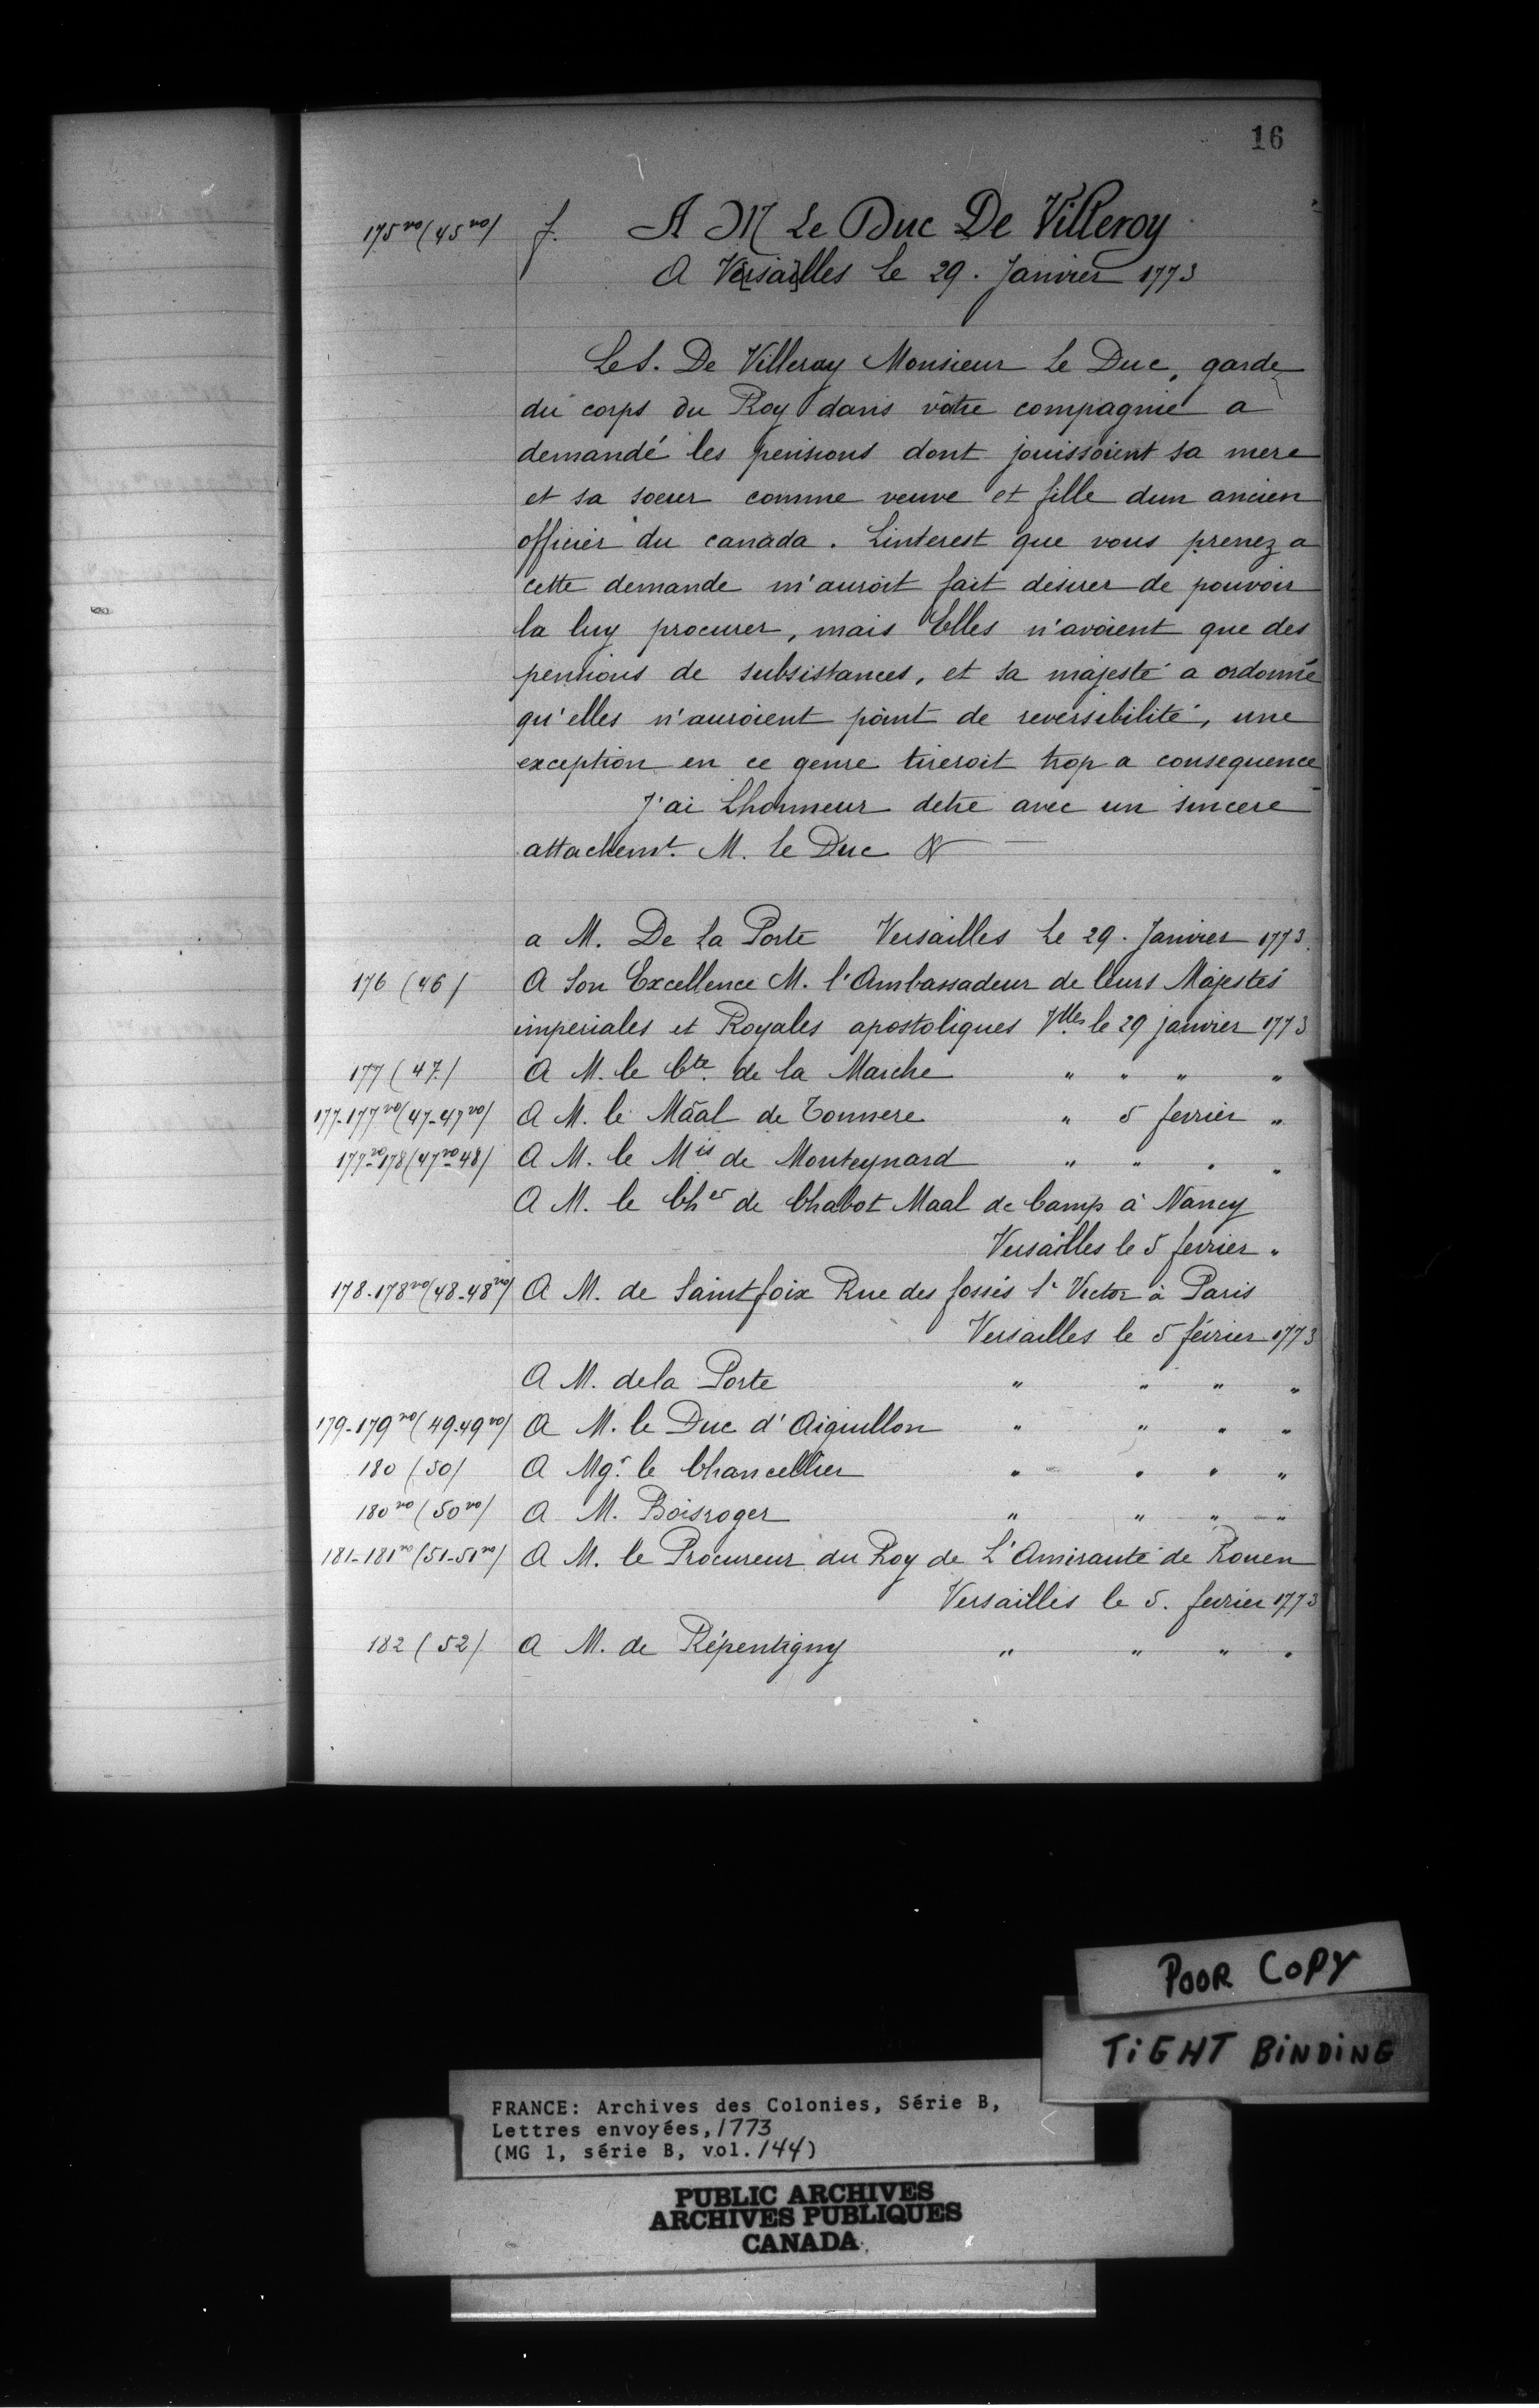 16
175vo (45vo) f. A M Le Duc De Villeroy
A Ve[rsai]lles le 29. Janvier 1773
Le S. De Villeray Monsieur Le Duc, garde
du corps du Roy dans vôtre compagnie a
demandé les pensions dont jouissoient sa mere
et sa soeur comme veuve et fille dun ancien
officier du canada. Linterest que vous prenez a
cette demande m'auroit fait desirer de pouvoir
la luy procurer, mais Elles n'avoient que des
pensions de subsistances, et sa majesté a ordonné
qu'elles n'auroient point de reversibilité, une
exception en ce genre tireroit trop a consequence
J'ai Lhonneur detre avec un sincere
attachemt. M. le Duc &
a M. De La Porte Versailles Le 29. Janvier 1773.
176 (46) A Son Excellence M. l'Ambassadeur de leurs Majestés
imperiales et Royales apostoliques Vlles le 29 janvier 1773
177 (47) A M. le Cte. de la Marche " " " "
177-177vo (47-47vo) A M. le Mãal de Tonnere " 5 fevrier "
177vo-178 (47vo-48) A M. le Mis de Monteynard " " " "
A M. le Cher de Chabot Maal de Camp à Nancy
Versailles le 5 fevrier "
178-178vo (48-48vo) A M. de Saintfoix Rue des fossés St Victor à Paris
Versailles le 5 février 1773
A M. dela Porte " " " "
179-179vo (49-49vo) A M. le Duc d'Aiguillon " " " "
180 (50) A Mgr. le Chancellier " " " "
180vo (50vo) A M. Boisroger " " " "
181-181vo (51-51vo) A M. le Procureur du Roy de L'Amirauté de Rouen
Versailles le 5. fevrier 1773
182 (52) A M. de Répentigny " " " "
POOR COPY
TIGHT BINDING
FRANCE: Archives des Colonies, Série B,
Lettres envoyées, 1773
(MG 1, série B, vol. 144)
PUBLIC ARCHIVES
ARCHIVES PUBLIQUES
CANADA